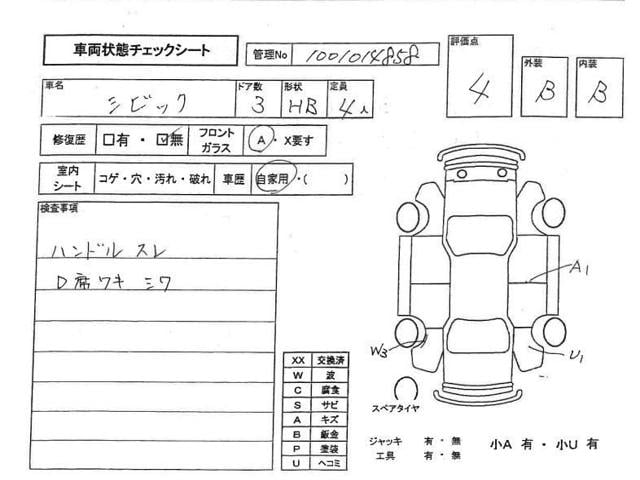 車両状態チェックシート
管理No 1001014858
評価点 4
外装 B
内装 B
車名 シビック
ドア数 3
形状 HB
定員 4人
修復歴 □有・☑無
フロントガラス A・X要す
室内シート コゲ・穴・汚れ・破れ
車歴 自家用・( )
検査事項
ハンドル スレ
D席ワキ シワ
A1
W3
U1
XX 交換済
W 波
C 腐食
S サビ
A キズ
B 鈑金
P 塗装
U ヘコミ
スペアタイヤ
ジャッキ 有・無
工具 有・無
小A 有・小U 有